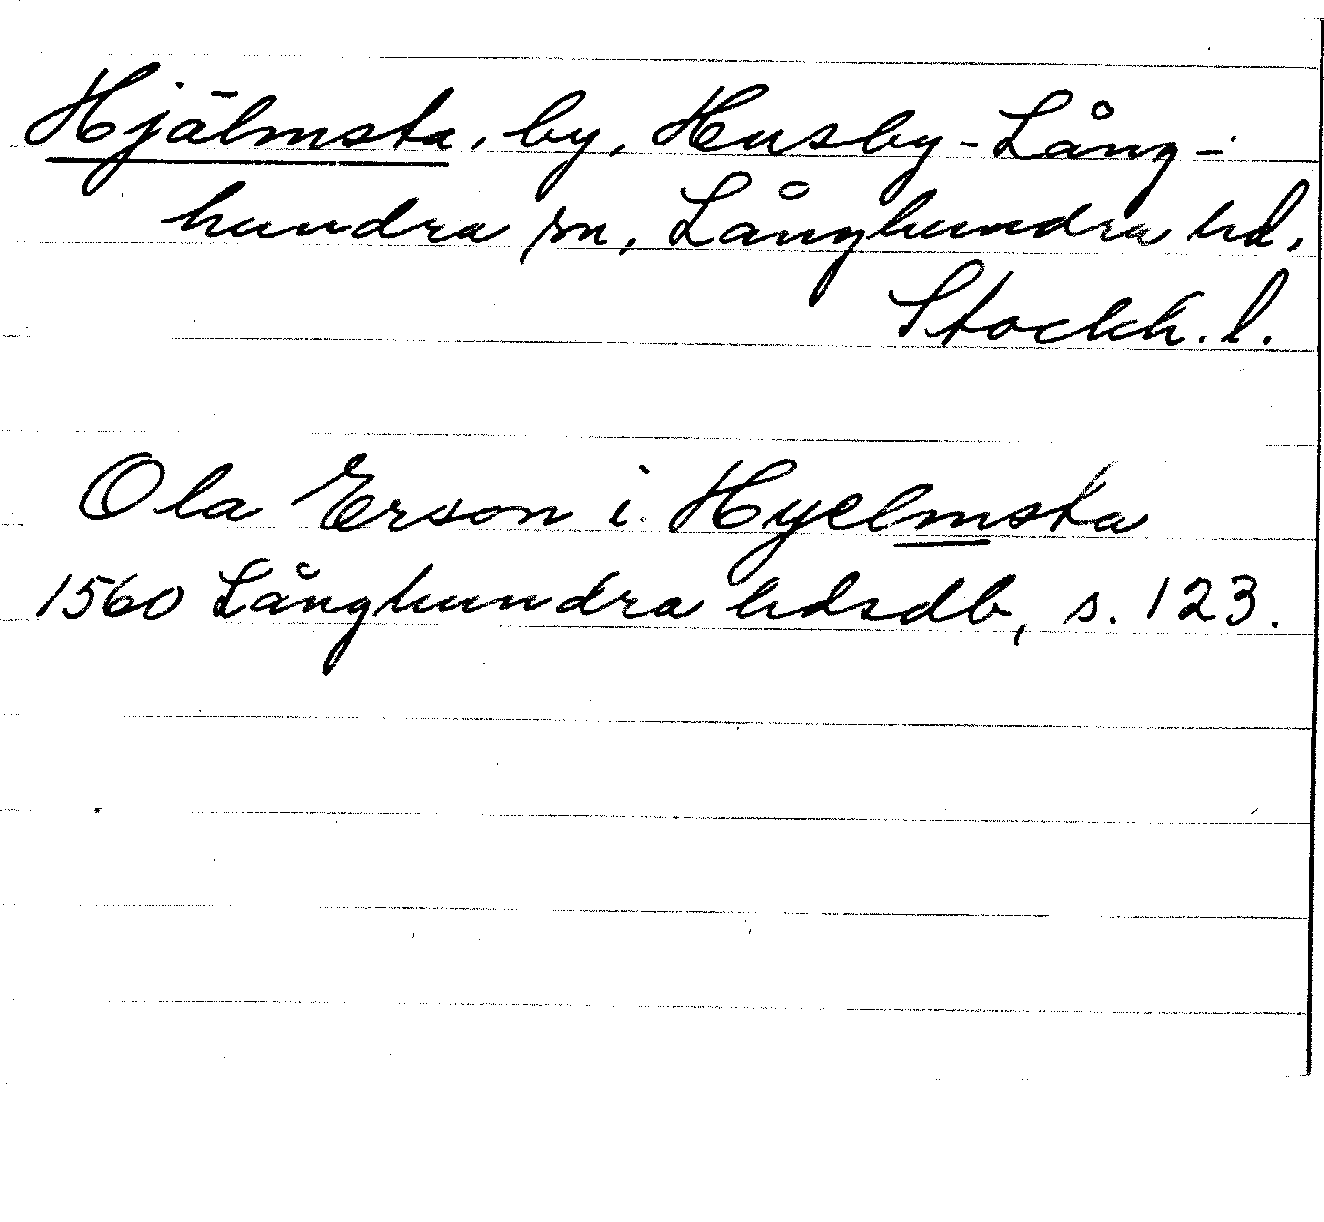 Hjälmsta, by, Husby-Lång-
hundra sn, Långhundra hd,
Stockh. l.
Ola Erson i Hyelmsta
1560 Långhundra hdsdb, s. 123.